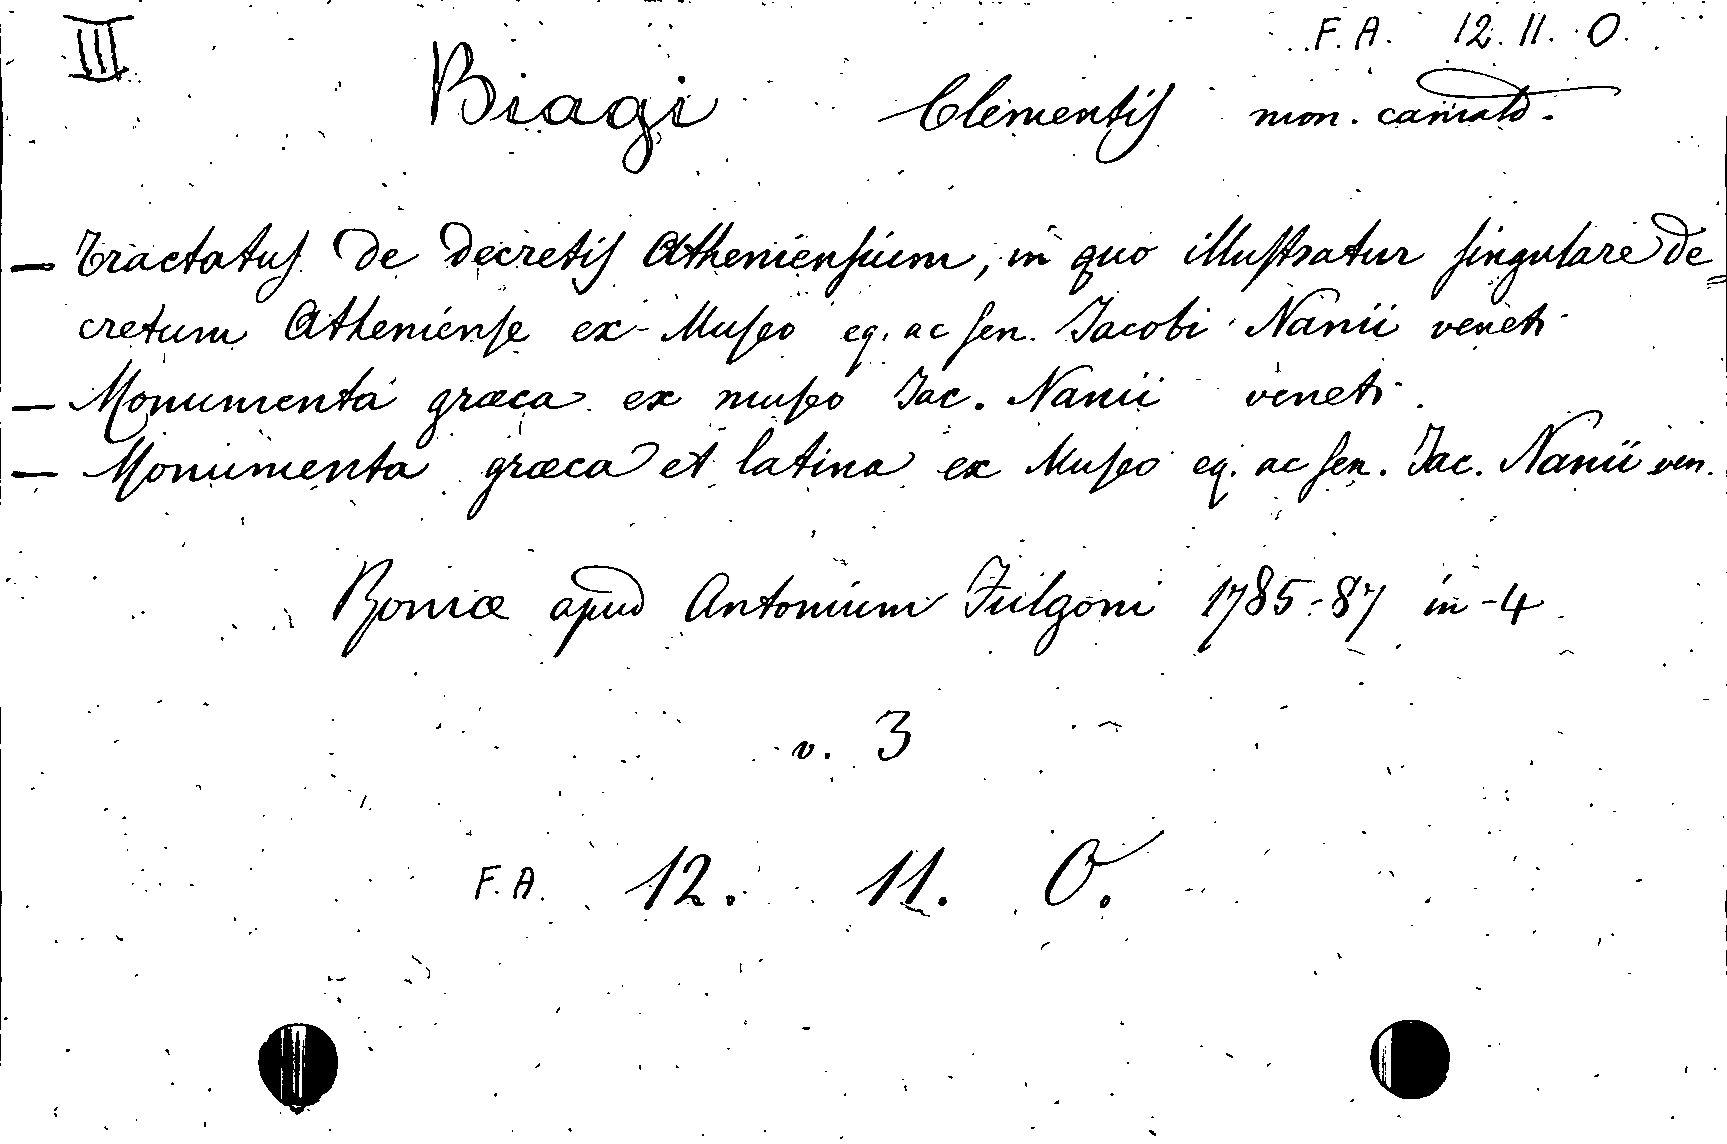 III
F. A. 12. 11. O.
Biagi Clementis mon. camald.
— Tractatus de decretis Atheniensium, in quo illustratur singulare de=
cretum Atheniense ex Museo eq. ac sen. Jacobi Nanii veneti
— Monumenta græca ex museo Jac. Nanii veneti.
— Monumenta græca et latina ex Museo eq. ac sen. Jac. Nanii ven.
Romæ apud Antonium Fulgoni 1785-87 in-4
v. 3
F. A. 12. 11. O.